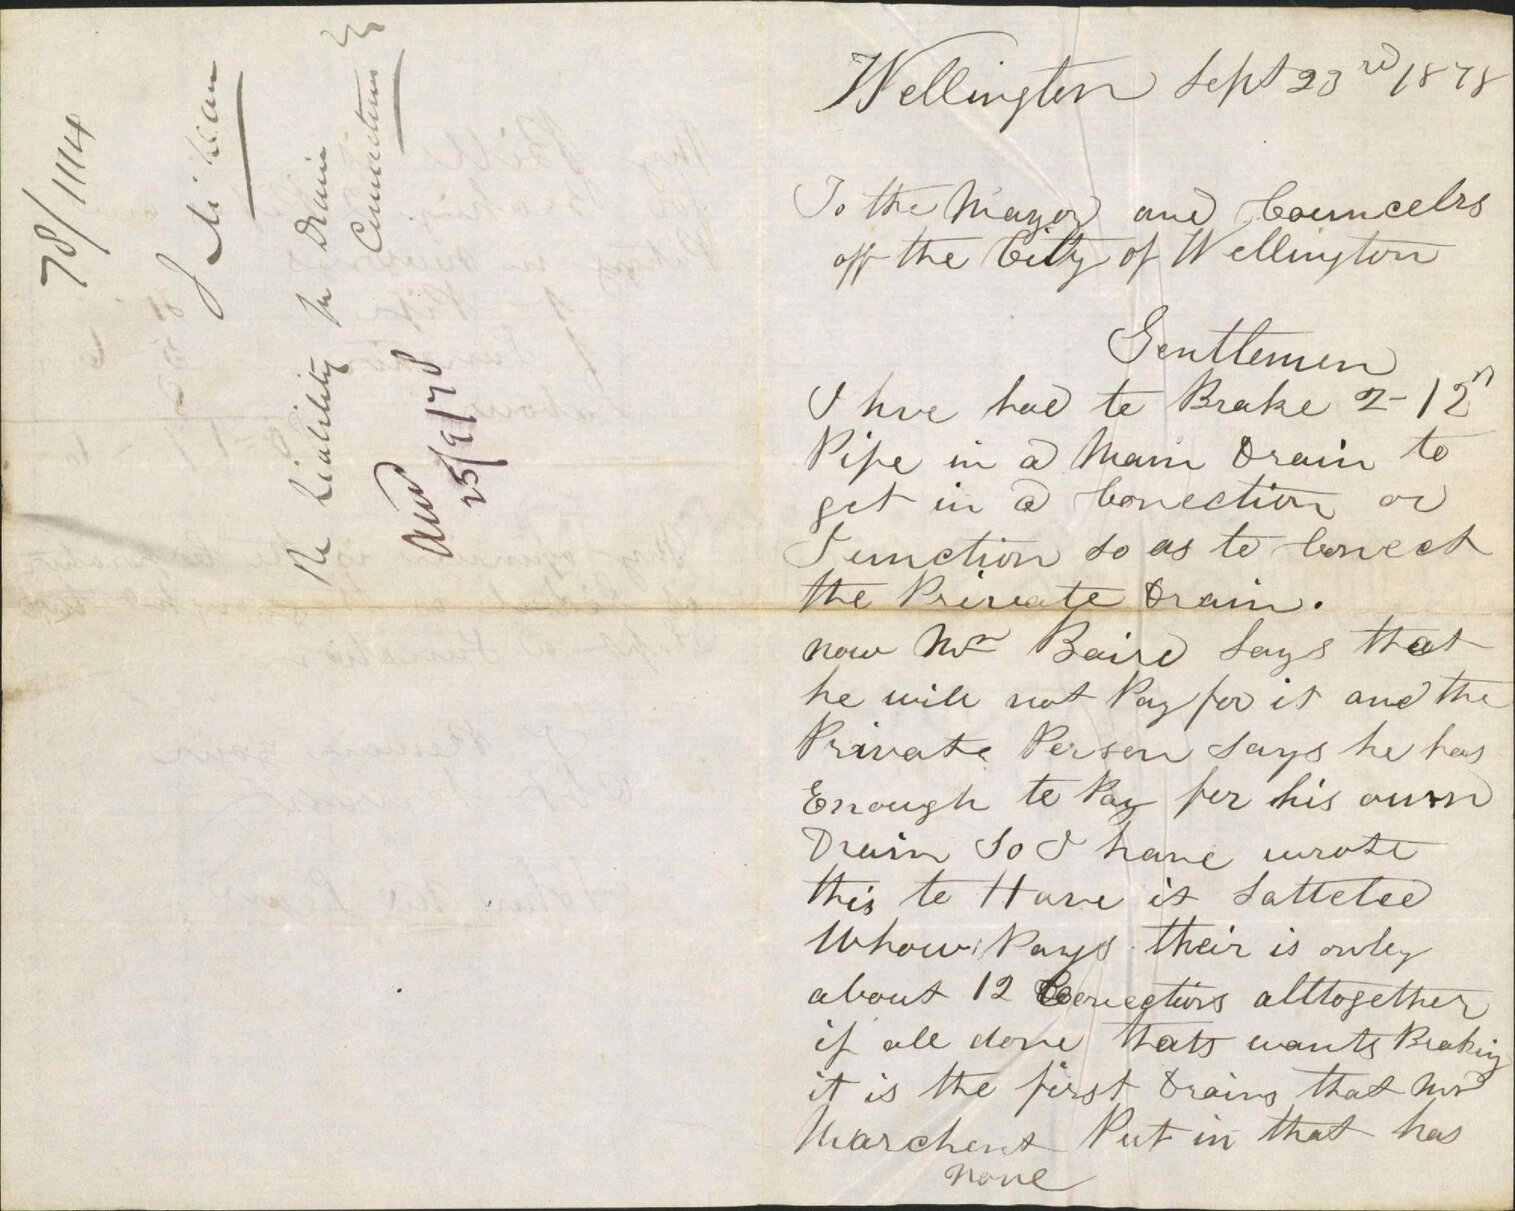 78/1114
J McLean
Re Liability in Drain
Connections
Ansd
25/9/78
Wellington Sept 23rd 1878
To the Mayor and Councelrs
off the City of Wellington
Gentlemen
I hve had to Brake 2-12"
Pipe in a Main Drain to
get in a Conection or
Junction so as to Conect
the Private Drain.
now Mr Baird Says that
he will not Pay for it and the
Private Person Says he has
Enough to Pay for his own
Drain So I have wrote
this to Have it Satteled
Whow Pays their is onley
about 12 Conections alltogether
if all done thats wants Braking
it is the first Drains that Mr
Marchent Put in that has
none